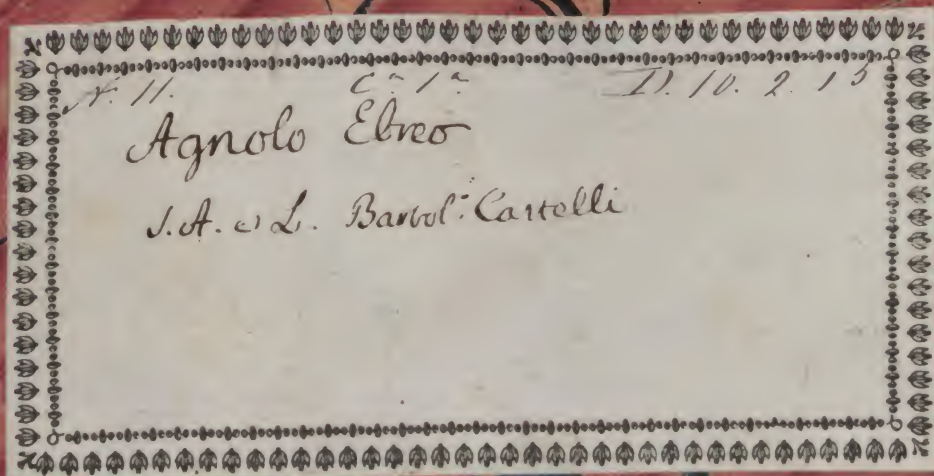 N. 11. C.a 1.a D. 10. 2. 15
Agnolo Ebreo
S. A. e L. Bartol: Castelli